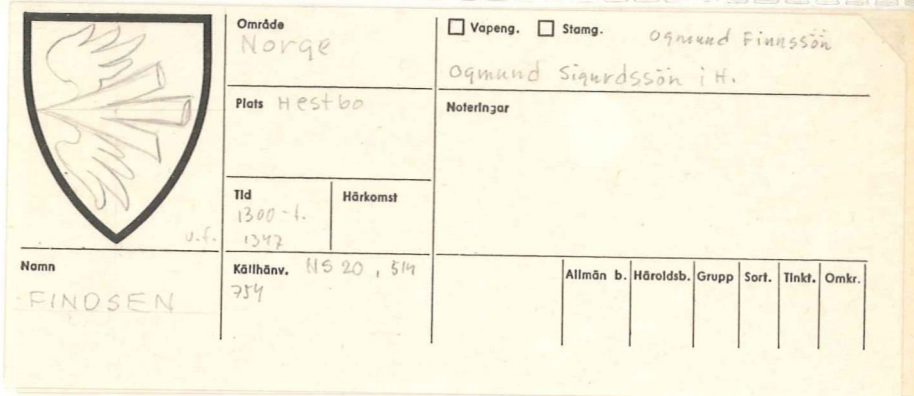 Område
Norge
Plats Hestbo
Tid
1300-t.
1347
Härkomst
Källhänv. NS 20, 514
754
u.f.
Namn
FINDSEN
Vapeng. Stamg. Ogmund Finnssön
Ogmund Sigurdssön i H.
Noteringar
Allmän b. Häroldsb. Grupp Sort. Tinkt. Omkr.